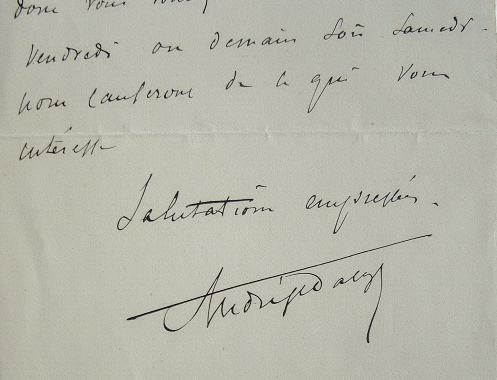 donc vous
Vendredi ou demain soir Samedi.
nous causerons de ce qui vous
intéresse
Salutations empressées.